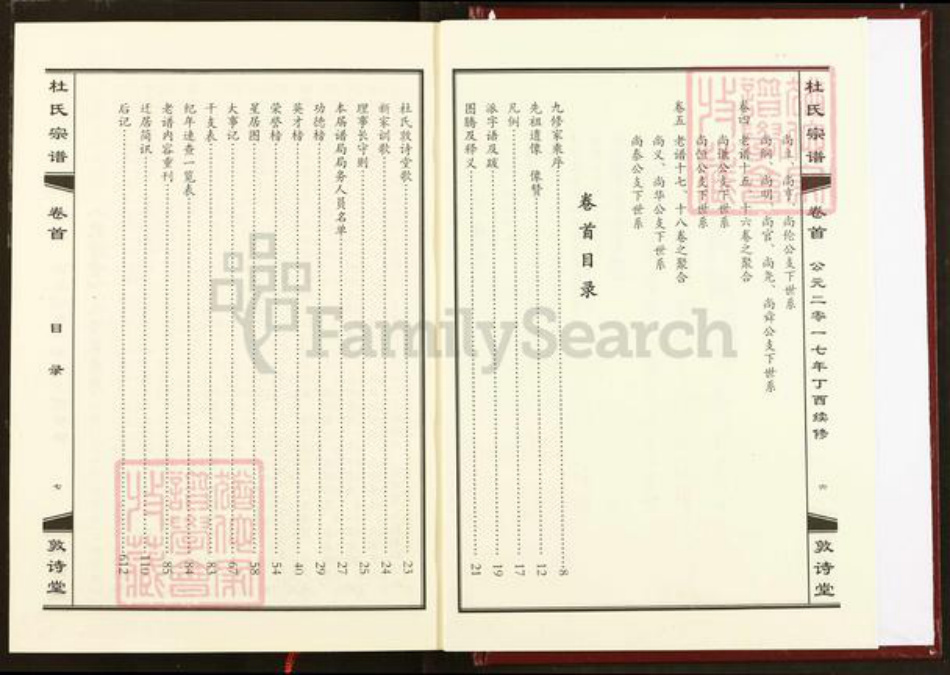 杜氏宗谱
卷首
公元二零一七年丁酉续修
六
敦诗堂
尚主、尚亨、尚伦公支下世系
尚纲、尚明、尚官、尚尧、尚舜公支下世系
卷四
老谱十五、十六卷之聚合
尚谦公支下世系
尚恒公支下世系
卷五
老谱十七、十八卷之聚合
尚义、尚华公支下世系
尚泰公支下世系
卷首目录
九修家乘序 8
先祖遗像 像赞 12
凡例 17
派字语及跋 19
图腾及释义 21
杜氏敦诗堂歌 23
新家训歌 24
理事长守则 25
本届谱局局务人员名单 27
功德榜 29
英才榜 40
荣登榜 54
星居图 58
大事记 67
干支表 83
纪年速查一览表 84
老谱内容重刊 85
迁居简讯 110
后记 612
杜氏宗谱
卷首
目录
七
敦诗堂
FamilySearch